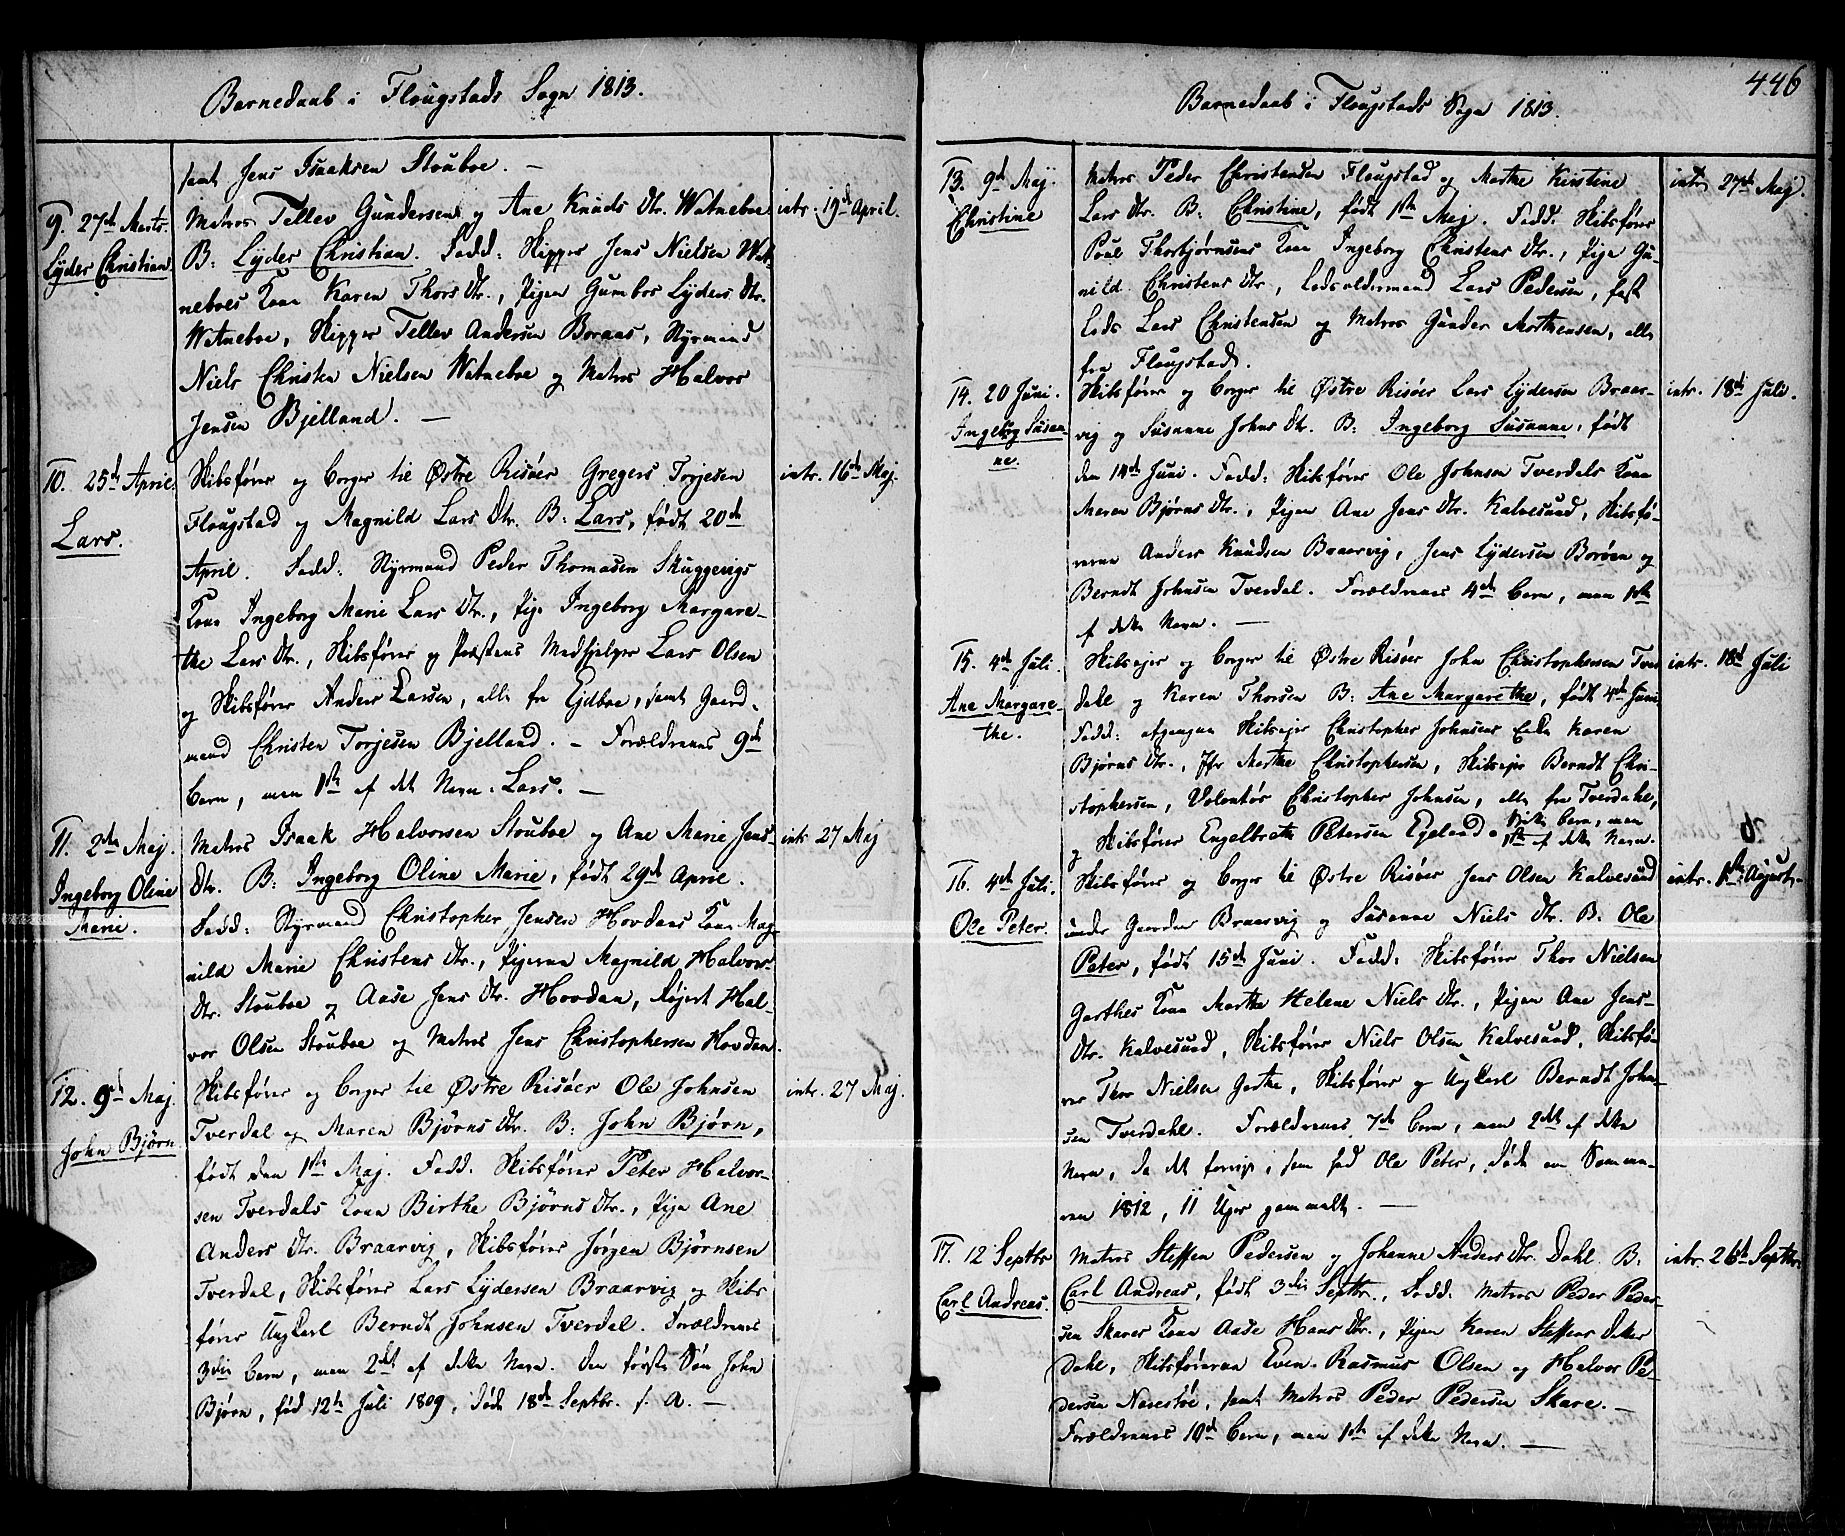 Barnedaab i Flougstads Sogn 1813.
samt Jens Isaaksen Stouboe. —
9. 27de Marts.
Lyder Christian.
Matros Tellev Gundersen og Ane Knuds Dtr. Watneboe
B: Lyder Christian. Fadd: Skipper Jens Nielsen Wat-
neboes Kone Karen Thors Dtr., Pigen Gumbor Lyders Dtr.
Watneboe, Skipper Tellev Andersen Boraas, Styrmand
Niels Christen Nielsen Watneboe og Matros Halvor
Jensen Bjelland. —
intr. 19de April.
10. 25de April.
Lars.
Skibsfører og borger til Østre Risøer Gregers Torjesen
Flougstad og Magnild Lars Dtr. B: Lars, født 20de
April. Fadd: Styrmand Peder Thomasen Skuggevigs
Kone Ingeborg Marie Lars Dtr., Pige Ingeborg Margare-
the Lars Dtr., Skibsfører og Præstens Medhjelper Lars Olsen
og Skibsfører Anders Larsen, alle fra Ejdboe, samt Gaard-
mand Christen Torjesen Bjelland. — Forældrenes 9de
barn, men 1ste af det Navn Lars. —
intr. 16de Maj.
11. 2den Maj.
Ingeborg Oline
Marie.
Matros Isaak Halvorsen Stouboe og Ane Marie Jens
Dtr. B: Ingeborg Oline Marie, født 29de April.
Fadd: Styrmand Christopher Jensen Hovdans Kone Mag-
nild Marie Christens Dtr., Pigerne Magnild Halvor
Dtr. Stouboe og Aase Jens Dtr. Hovdan, Røjert Hal-
vor Olsen Stouboe og Matros Jens Christophersen Hovdan.
intr. 27 Maj
12. 9de Maj.
John Bjørn
Skibsfører og borger til Østre Risøer Ole Johnsen
Tverdal og Maren Bjørns Dtr. B: John Bjørn,
født den 1ste Maj. Fadd. Skibsfører Peter Halvor-
sen Tverdals Kone Birthe Bjørns Dtr., Pige Ane
Anders Dtr. Braarvig, Skibsfører Jørgen Bjørnsen
Tverdal, Skibsfører Lars Lydersen Braarvig og Skibs
fører Ungkarl Berndt Johnsen Tverdal. Forældrenes
3die barn, men 2det af dette Navn. Den første Søn John
Bjørn, fød 12te Juli 1809, døde 18de Septbr. s. A. —
intr. 27 Maj.
446
Barnedaab i Flougstads Sogn 1813.
13. 9de Maj.
Christine
Matros Peder Christensen Flougstad og Marthe Kirstine
Lars Dtr. B: Christine, født 1ste Maj. Fadd. Skibsfører
Poul Thorbjørnsens Kone Ingeborg Christens Dtr., Pige Gu-
nild Christens Dtr., Lodsoldermand Lars Pedersen, fast
Lods Lars Christensen og Matros Gunder Morthensen, alle
fra Flougstad.
intr. 27de Maj.
14. 20 Juni.
Ingeborg Susan-
ne.
Skibsfører og borger til Østre Risøer Lars Lydersen Braar-
vig og Susanne Johns Dtr. B: Ingeborg Susanne, født
den 14de Juni. Fadd: Skibsfører Ole Johnsen Tverdals Kone
Maren Bjørns Dtr., Pigen Ane Jens Dtr. Kalvesund, Skibsfø-
rerne Anders Knudsen Braarvig, Jens Lydersen Borøen og
Berndt Johnsen Tverdal. Forældrenes 4de barn, men 1ste
af dette Navn. —
intr. 18de Juli.
15. 4de Juli.
Ane Margare-
the.
Skibsejer og borger til Østre Risøer John Christophersen Tver
dahl og Karen Thorsen B: Ane Margarethe, født 4de Juni
Fadd: afgangne Skibsejer Christopher Johnsens Enke Karen
Bjørns Dtr., Jfr Marthe Christophersen, Skibsejer Berndt Chri-
stophersen, Volontør Christopher Johnsen, alle fra Tverdahl,
og Skibsfører Engelbreth Petersen Egeland. Første barn, men
1ste af dette Navn.
intr. 18de Juli
16. 4de Juli.
Ole Peter.
Skibsfører og borger til Østre Risøer Jens Olsen Kalvesund
under Gaarden Braarvig og Susanne Niels Dtr. B: Ole
Peter, født 15de Juni. Fadd: Skibsfører Thor Nielsen
Garthes Kone Marthe Helene Niels Dtr., Pigen Ane Jens-
Dtr. Kalvesund, Skibsfører Niels Olsen Kalvesund, Skibsfø-
rer Thor Nielsen Garthe, Skibsfører og Ungkarl Berndt John-
sen Tverdahl. Forældrenes 7de barn, men 2det af dette
Navn, da det forrige, som hed Ole Peter, døde om Somme-
ren 1812, 11 Uger gammelt. —
intr. 1ste August.
17. 12 Septbr
Carl Andreas.
Matros Steffen Pedersen og Johanne Anders Dtr. Dahl. B:
Carl Andreas, født 3die Septbr., Fadd. Matros Peder Peder-
sen Skares Kone Aase Hans Dtr., Pigen Karen Steffens Datter
Dahl, Skibsførerne Even Rasmus Olsen og Halvor Pe-
dersen Narestøe, samt Matros Peder Pedersen Skare. —
Forældrenes 10de barn, men 1ste af dette Navn. —
intr. 26de Septbr.